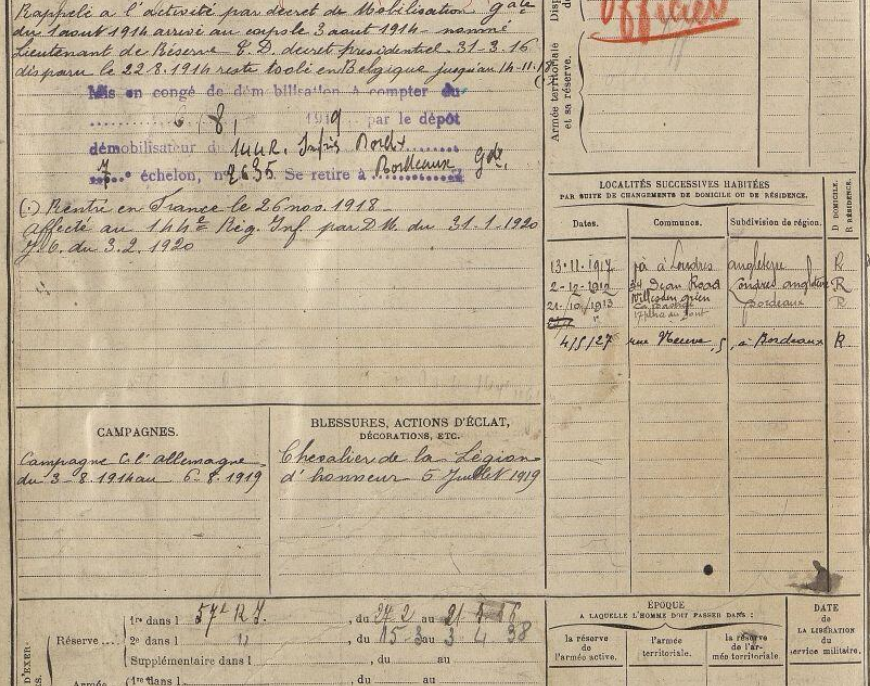 Rappelé à l'activité par décret de Mobilisation gale
du 1 aout 1914 arrivé au corps le 3 aout 1914 - nommé
Lieutenant de Réserve T.D. decret presidentiel 31-3-16
disparu le 22.8.1914 resté en Belgique jusqu'au 14-11-18
Mis en congé de démobilisation à compter du
6 8 1919 par le dépôt
démobilisateur du 144 R. Infie Bordx
7e échelon, n° 2635 Se retire à Bordeaux Gde.
(.) Rentré en France le 26 nov. 1918
Affecté au 144e Rég. Inf. par D.M. du 31.1.1920
J.O. du 3.2.1920
Officier
Armée territoriale
et sa réserve.
LOCALITÉS SUCCESSIVES HABITÉES
PAR SUITE DE CHANGEMENTS DE DOMICILE OU DE RÉSIDENCE.
D DOMICILE.
R RÉSIDENCE.
Dates. Communes. Subdivision de région.
13.11.1917 à Londres angleterre R
2-12-1912 34 Dean Road Londres angleterre R
Willesden green
21/10/1913 bordeaux R
4/5/27 rue Neuve, 5, à Bordeaux R
CAMPAGNES.
Campagne C. l'allemagne
du 3-8.1914 au 6.8.1919
BLESSURES, ACTIONS D'ÉCLAT,
DÉCORATIONS, ETC.
Chevalier de la Légion
d'honneur 5 Juillet 1919
Réserve ....
1re dans l 57e R.I. , du 27 2 au 21
2e dans l " , du 15 3 au 3 4 38
Supplémentaire dans l , du au
Armée
1re dans l , du au
D'EXER-
ÉPOQUE
A LAQUELLE L'HOMME DOIT PASSER DANS :
la réserve
de l'armée active.
l'armée
territoriale.
la réserve
de l'ar-
mée territoriale.
DATE
de
LA LIBÉRATION
du
service militaire.